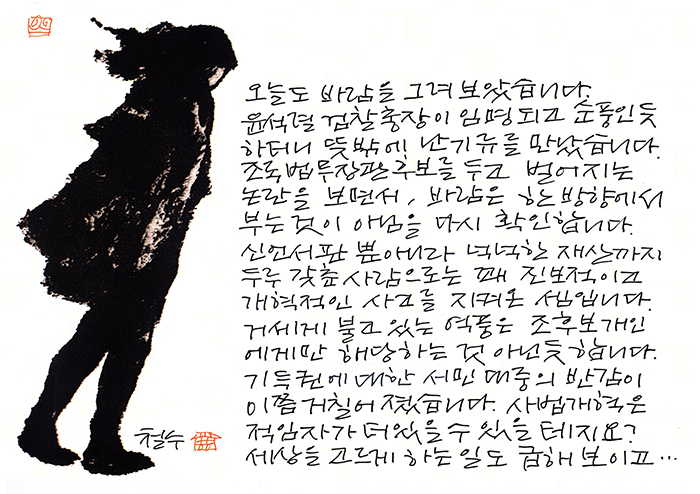 오늘도 바람을 그려 보았습니다.
윤석렬 검찰총장이 임명되고 순풍인듯
하더니 뜻밖에 난기류를 만났습니다.
조국법무장관후보를 두고 벌어지는
논란을 보면서, 바람은 한 방향에서
부는 것이 아님을 다시 확인합니다.
신언서판 뿐아니라 넉넉한 재산까지
두루 갖춘 사람으로는 꽤 진보적이고
개혁적인 사고를 지켜온 셈입니다.
거세게 불고 있는 역풍은 조후보개인
에게만 해당하는 것 아닌듯합니다.
기득권에 대한 서민 대중의 반감이
이쯤 거칠어 졌습니다. 사법개혁은
적임자가 더있을 수 있을 테지요?
세상을 고르게 하는 일도 급해 보이고…
철수